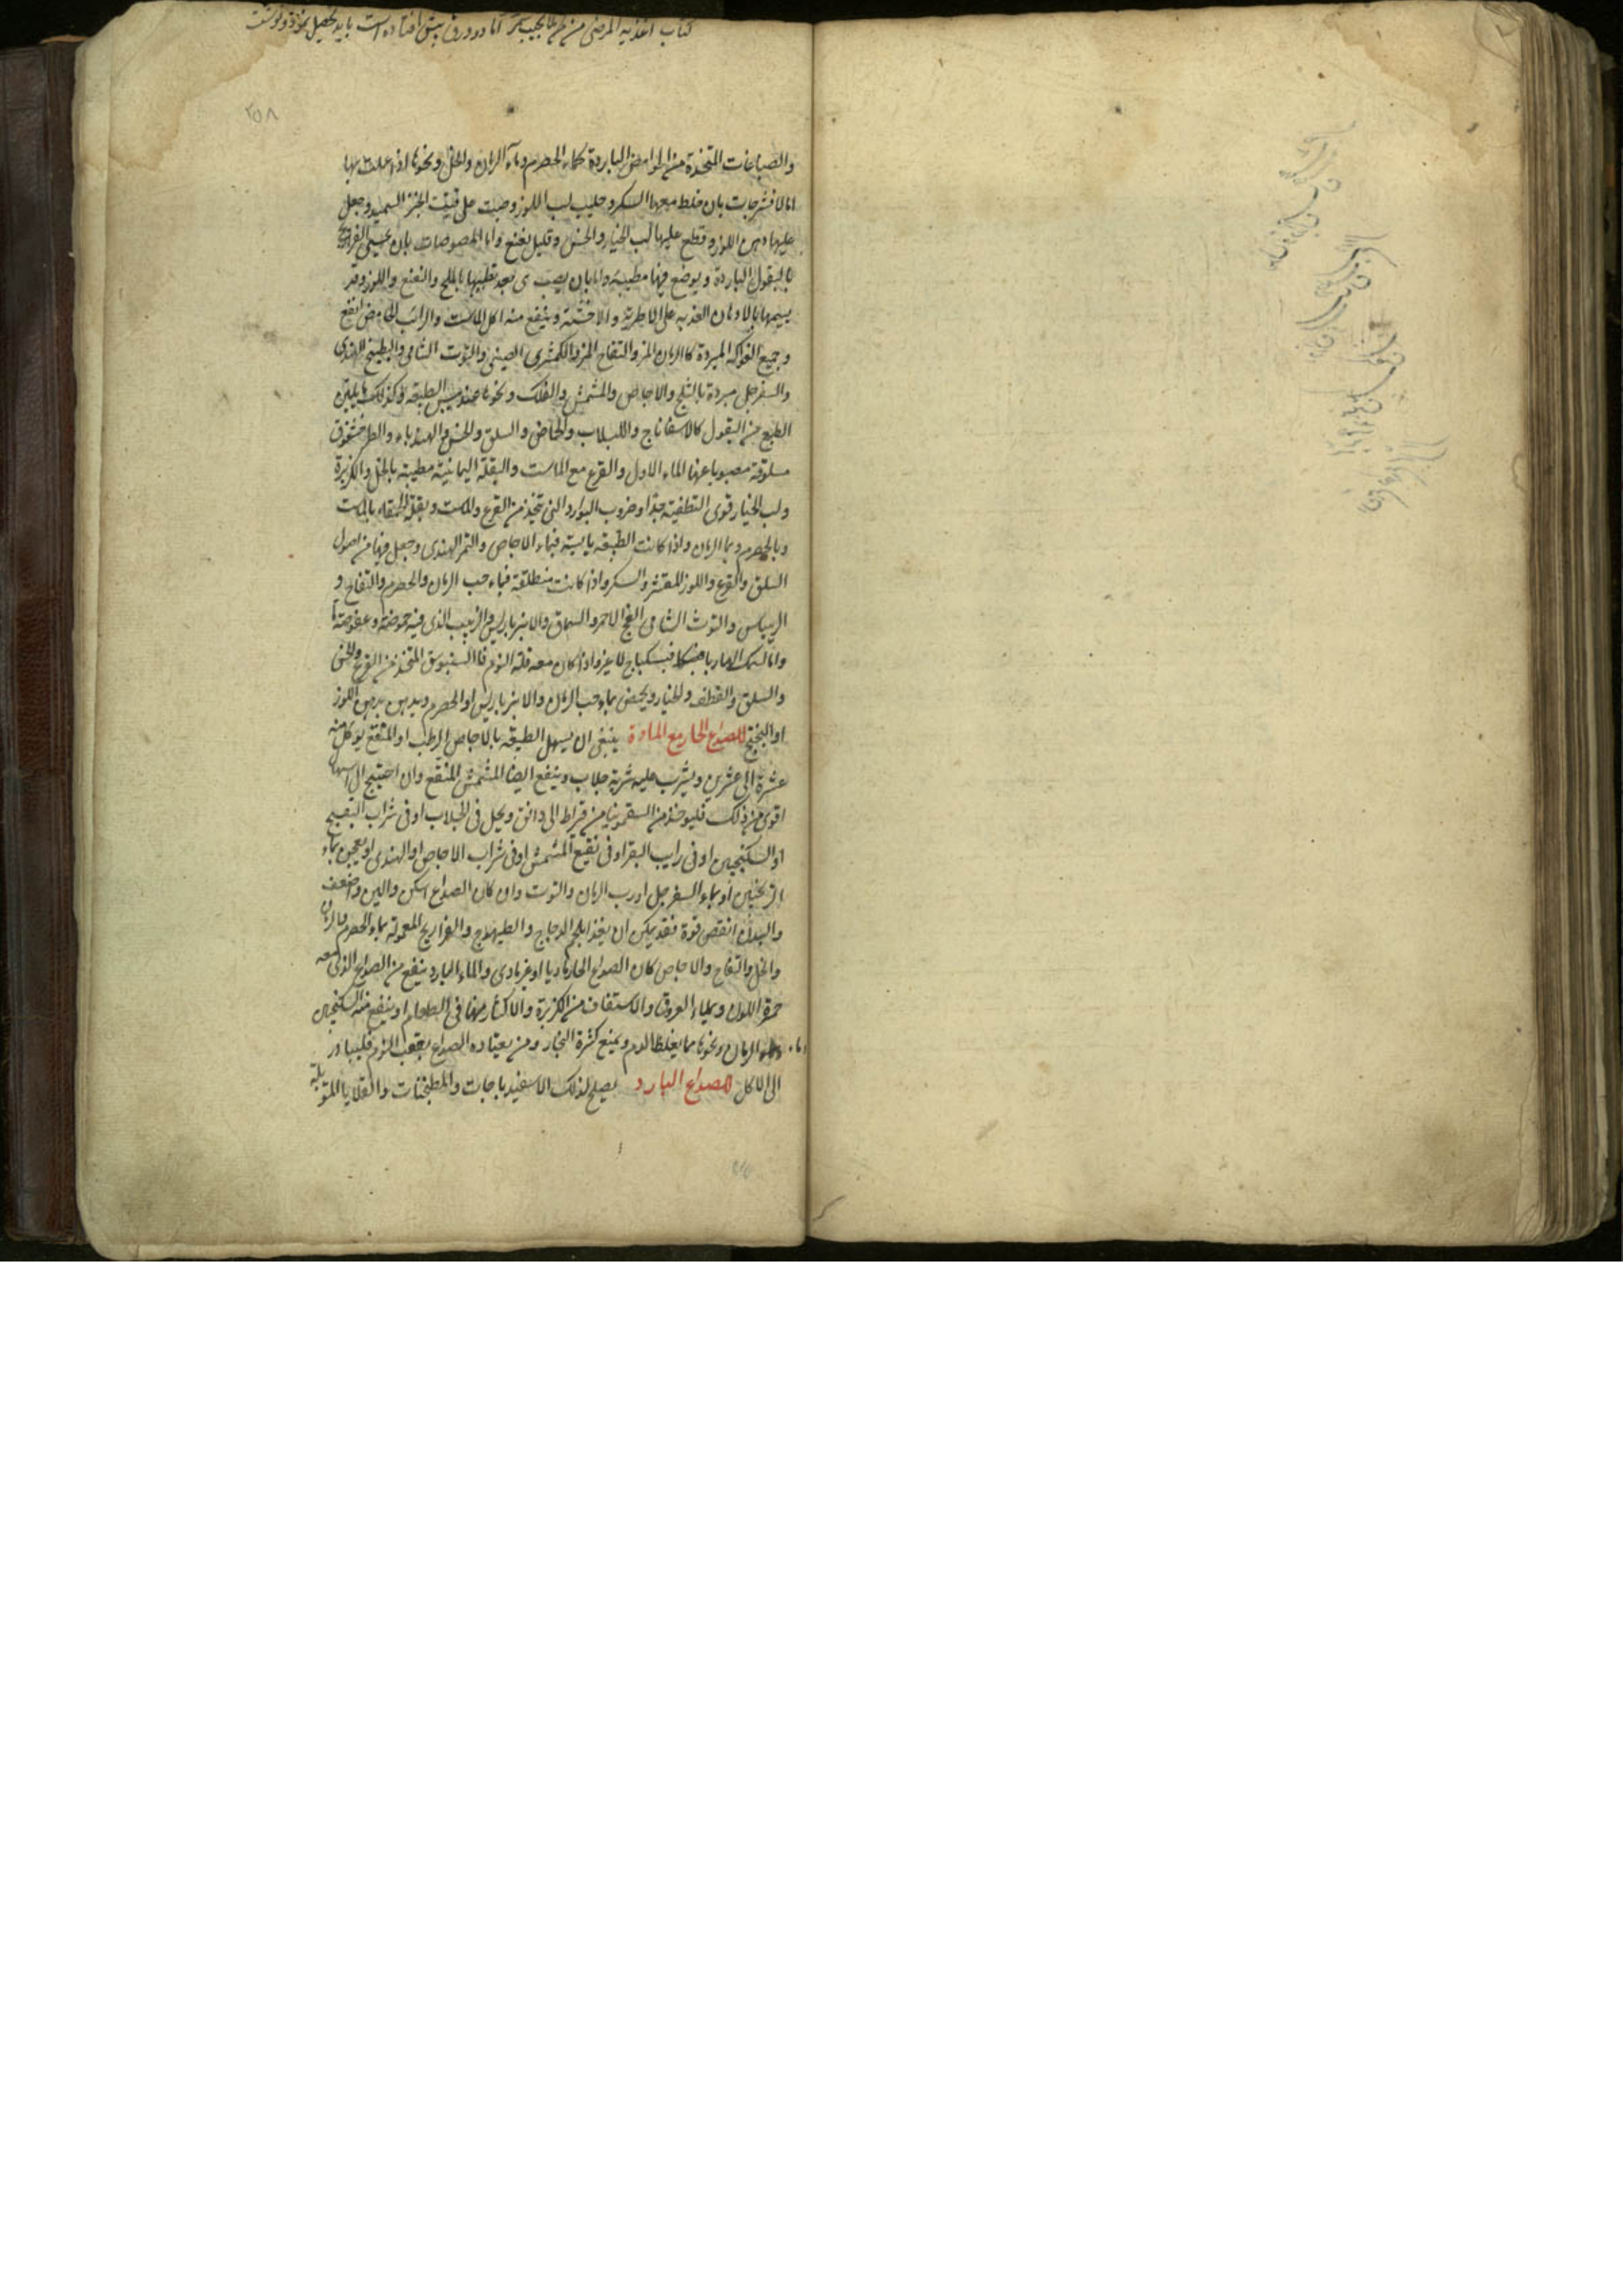 كتاب اغذية المرضى من نجيب سمر اما دو ورق پیش افتاده است باید تحصیل نموده نوشت
۲۵۸
والصباغات المتخذة من الحوامض الباردة كماء الحصرم وماء الرمان والخل ونحوها اذا عملت بها
اما لا فشرجات بان خلط معها السكر وحليب لب اللوز وصبت على فتيت الخبز السميد وجعل
عليها دهن اللوز وقطع عليها لب الخيار والخس وقليل نعنع واما المصوصات بان يحشى الفراريج
بالبقول الباردة ويوضع فيها مطيبة واما بان يصب بعد تطيبها بالملح والنعنع واللوز وقد
يسمها بالادهان العذبه على الاطرية والاخشمة وينفع منه اكل الماست والرائب الحامض انفع
وجميع الفواكه المبردة كالرمان المز والتفاح المز والكمثرى الصينى والتوت الشامى والبطيخ الهندى
والسفرجل مبردة بالثلج والاجاص والمشمش والفلك ونحوها عند يبس الطبيعة وكذلك ما يلين
الطبع من البقول كالاسفاناج واللبلاب والحماض والسلق والخس والهندباء والطرخشقوق
مسلوقة مصبوبا عنها الماء الاول والقرع مع الماست والبقلة اليمانية مطيبة بالخل والكزبرة
ولب الخيار قوى التطفية جدا وضروب البوارد التى تتخذ من القرع والماست وبقلة الحمقاء بالماست
وبالحصرم وبما الرمان واذا كانت الطبيعة يابسة فبماء الاجاص والتمر الهندى وجعل فيها من اصول
السلق والقرع واللوز المقشر والسكر واذا كانت منطلقة فبماء حب الرمان والحصرم والتفاح و
الريباس والتوث الشامى الفج الاحمر والسماق والانبرباريس والزبيب الذى فيه حموضة وعفوصة
واما السمك فسكباج لا غير واذا كان معه قلة النوم فالسنبوسق المتخذ من القرع والخس
والسلق والقطف والخيار ويحمض بماء حب الرمان والانبرباريس او الحصرم ويدهن بدهن اللوز
او البنفسج للصداع الحار مع المادة ينبغى ان يسهل الطبيعة بالاجاص الرطب او المنقع يؤكل منه
عشرة الى عشرين ويشرب عليه شربة جلاب وينفع ايضا المشمش المنقع وان احتيج الى اسهال
اقوى من ذلك فليوخذ من السقمونيا من قيراط الى دانق ويحل فى الجلاب او فى شراب البنفسج
او السكنجبين او فى رايب البقر او فى نقيع المشمش او فى شراب الاجاص او الهندى او يعجن بماء
الترنجبين او بماء السفرجل او رب الرمان والتوت وان كان الصداع اسكن والين واضعف
والبدن انقص قوة فقد يمكن ان يغذا بلحم الدجاج والطيهوج والفراريج المعمولة بماء الحصرم والرمان
والخل والتفاح والاجاص كان الصداع الحار ماديا او غير مادى والماء البارد ينفع من الصداع الذى معه
حمرة اللون وبملاء العروق والاستفاف من الكزبرة والاكثار منها فى الطعام او ينفع منه السكنجبين
وماء الرمان ونحوها مما يغلظ الدم ويمنع كثرة البخار ومن يعتاده الصداع بعقب النوم فليبادر
الى الاكل للصداع البارد يصلح لذلك الاسفيدباجات والمطجنات والقلايا المتوبلة